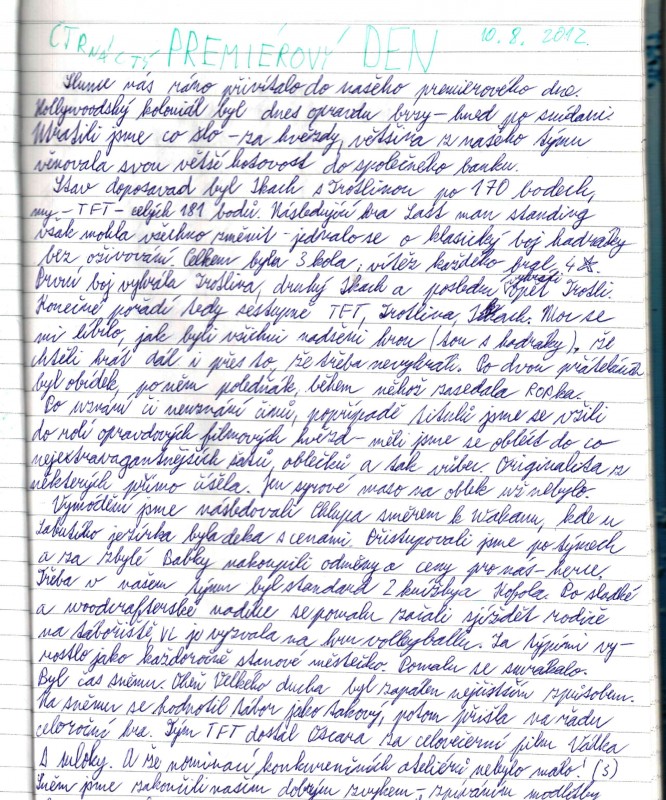 ČTRNÁCTÝ PREMIÉROVÝ DEN 10.8.2012.
Slunce nás ráno přivítalo do našeho premiérového dne.
Hollywoodský koloniál byl dnes opravdu brzy - hned po snídani.
Utratili jsme co šlo - za hvězdy, většina z našeho týmu
věnovala svou větší hotovost do společného banku.
Stav doposavad byl Skach s Trotlinou po 170 bodech,
my - TFT - celých 181 bodů. Následující hra Last man standing
však mohla všechno změnit - jednalo se o klasický boj hadráky
bez oživování. Celkem byla 3 kola, vítěz každého bral 4
První boj vybrála Trotlina, druhý Skach a poslední opět Trotli.
Konečné pořadí tedy sestupně TFT, Trotlina Skach. Moc se
mi líbilo, jak byli všichni nadšeni hrou (tou s hadráky), že
chtěli hrát dál i přes to, že třeba nevyhráli. Po dvou přátelácích
byl obídek, po něm poledňák, během něhož zasedala RORka.
Po uznání či neuznání činů, popřípadě titulů jsme se vžili
do rolí opravdových filmových hvězd - měli jsme se obléct do co
nejextravagantnějších šatů, oblečků a tak vůbec. Originalita z
některých přímo čišela. Jen syrové maso na oblek už nebylo.
Vymódění jsme následovali Chlupa směrem k Wakanu, kde u
Labutího jezírka byla deka s cenami. Přistupovali jsme po týmech
a za zbylé Babky nakoupili odměny a ceny pro nás - herce.
Třeba v našem týmu byl standard 2 knížky a Kopola. Po sladké
a woodcrafterské nadílce se pomalu začali sjíždět rodiče
na tábořiště VL je vyzvala na hru volleyballu. Za týpími vy-
rostlo jako každoročně stanové městečko. Pomalu se smrákalo.
Byl čas sněmu. Oheň Velkého ducha byl zapálen nejčistším způsobem.
Na sněmu se hodnotil tábor jako takový, potom přišla na řadu
celoroční hra. Tým TFT dostal Oscara za celovečerní film Válka
s mloky. A že nominací konkurenčních ateliérů nebylo málo! (3)
Sněm jsme zakončili naším dobrým zvykem - zpíváním modlitby